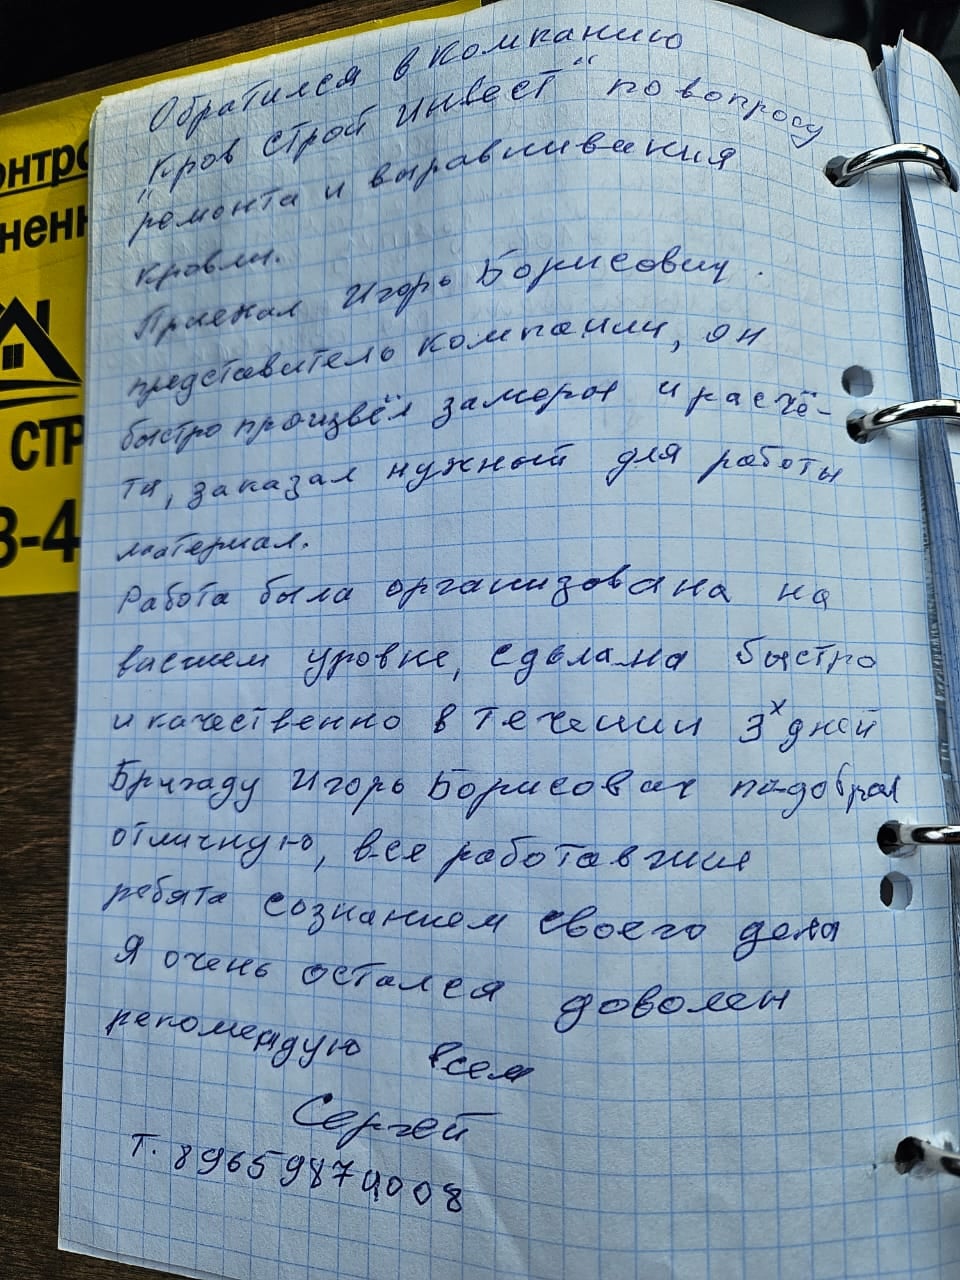 Обратился в компанию
"Кров Строй Инвест" по вопросу
ремонта и выравнивания
кровли.
Приехал Игорь Борисович.
представитель компании, он
быстро произвёл замеры и расчё-
ты, заказал нужный для работы
материал.
Работа была организована на
высшем уровне, сделана быстро
и качественно в течении 3х дней
Бригаду Игорь Борисович подобрал
отличную, все работавшие
ребята со знанием своего дела
Я очень остался доволен
рекомендую всем
Сергей
Т. 89659874008
онтро
ненн
СТР
3-4